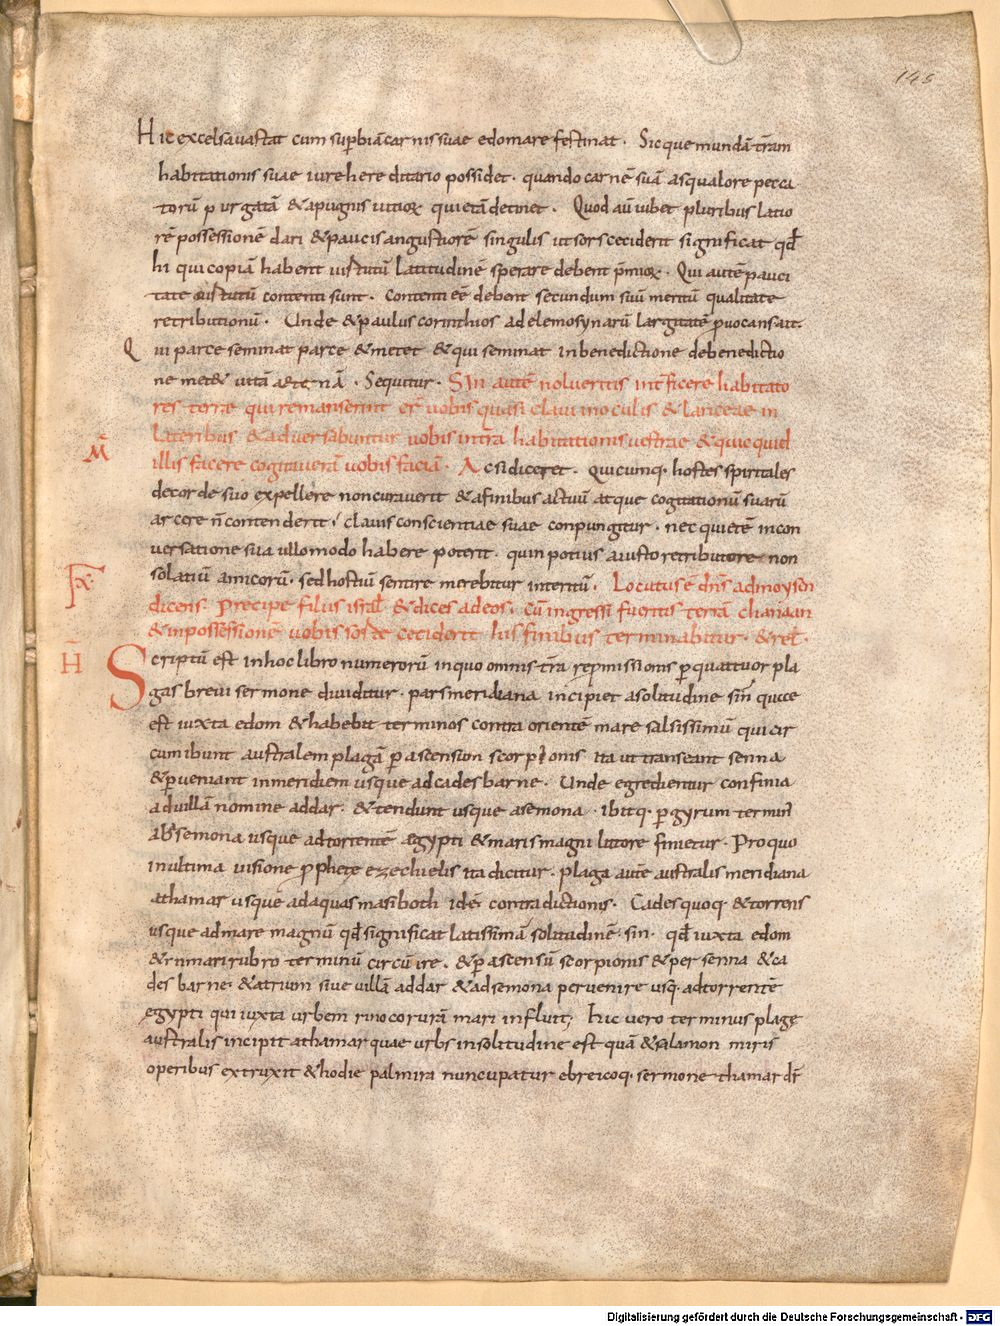 145
Hic excelsa uastat cum supbiā carnis suae edomare festinat · Sicque mundā trām
habitationis suae iure hereditario possidet · quando carnē suā a squalore pecca
torū purgatā & a pugnis uitioꝝ quietā detinet · Quod aū iubet pluribus latio
rē possessionē dari & paucis angustiorē singulis ut sors ceciderit significat qd̄
hi qui copiā habent uirtutū latitudinē sperare debent p̄mioꝝ · Qui autē pauci
tate uirtutū contenti sunt · contenti eē debent secundum suū meritū qualitate
retributionū · Unde & paulus corinthios ad elemosynarū largitatē ꝓuocans ait ·
Qui parce seminat parce & metet & qui seminat in benedictione de benedictio
ne met& uitā aeternā · Sequitur · Sin autē nolueritis interficere habitato
res terrae qui remanserint er̄ uobis quasi claui in oculis & lanceae in
lateribus & aduersabuntur uobis in trā habitationis uestrae & quicquid
M̄
illis facere cogitauerā uobis faciā · Ac si diceret · Quicumq· hostes spiritales
de corde suo expellere non curauerit & a finibus actuū atque cogitationū suarū
arcere n̄ contenderit · clauis conscientiae suae conpungitur · nec quietē in con
uersatione sua ullo modo habere poterit · quin potius a iusto retributore non
solatiū amicorū · sed hostiū sentire merebitur interitū · Locutus ē dn̄s ad moysen
dicens · Precipe filiis isrl̄ & dices ad eos · Cū ingressi fueritis terrā chanaan
& in possessionē uobis sorte ceciderit his finibus terminabitur · & rel̄ ·
H̄
Scriptū est in hoc libro numerorū in quo omnis tr̄a repmissionis ꝑ quattuor pla
gas breui sermone diuiditur · pars meridiana incipiet a solitudine sin quae
est iuxta edom & habebit terminos contra orientē mare salsissimū qui cir
cumibunt australem plagā ꝑ ascensum scorpionis ita ut transeant senna
& ꝑueniant in meridiem usque ad cades barne · Unde egredientur confinia
ad uillā nomine addar · & tendunt usque asemona · ibitq· ꝑ gyrum termin̄
ab semona usque ad torrentē aegypti & maris magni littore finietur · Pro quo
in ultima uisione ꝓphetę ezechielis ita dicitur · plaga autē australis meridiana
athamar usque ad aquas masiboth idē contradictionis · Cades quoq· & torrens
usque ad mare magnū qd̄ significat latissimā solitudinē · sin · qd̄ iuxta edom
& rumari rubro terminū circūire · & ꝑ ascensū scorpionis & per senna & ca
des barne · & atrium siue uillā addar & ad semona peruenire usq· ad torrentē
egypti qui iuxta urbem rinocorurā mari influit; hic uero terminus plagę
australis incipit athamar quae urbs in solitudine est quā & salamon miris
operibus extruxit & hodie palmira nuncupatur ebreicoq· sermone thamar dr̄
Digitalisierung gefördert durch die Deutsche Forschungsgemeinschaft - DFG